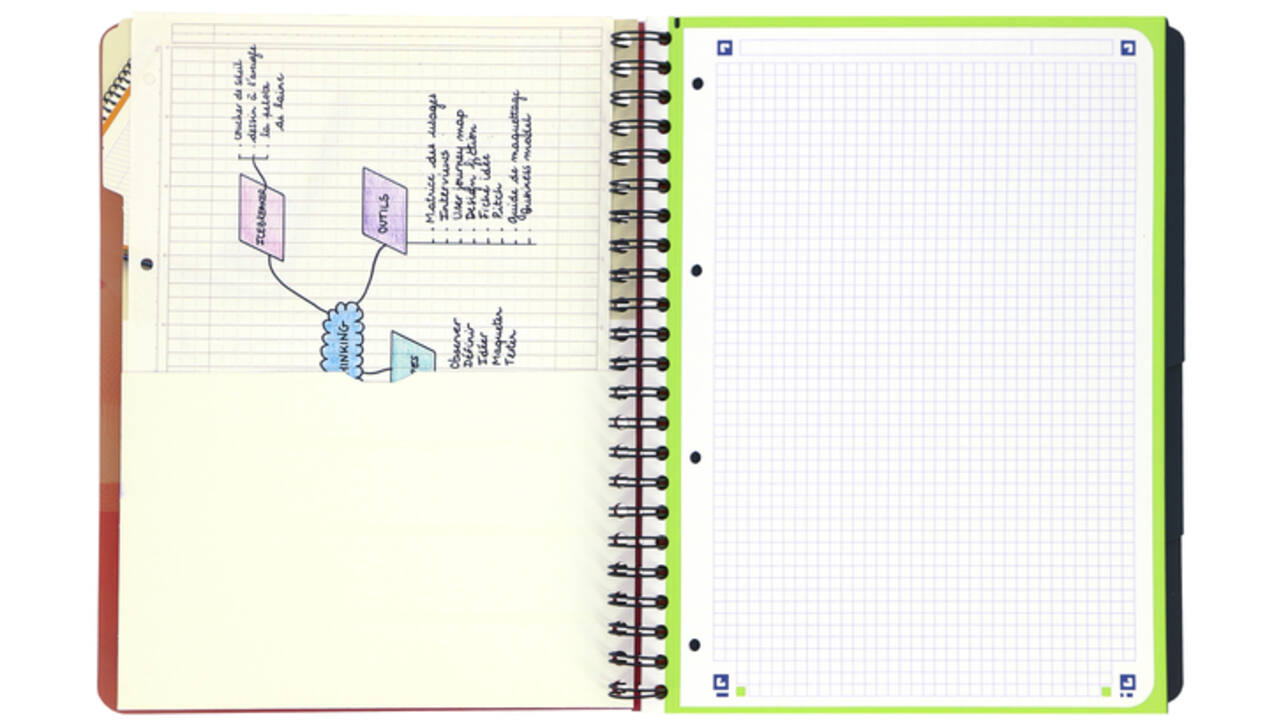 . coucher de soleil
. dessin à l'aveugle
. la pelote
de laine
ICEBREAKER
OUTILS
- Matrice des usages
- Interviews
- User journey map
- Design fiction
- Fiche idée
- Pitch
- Guide de maquettage
- Business model
HINKING
ES
Observer
Définir
Idéer
Maquetter
Tester